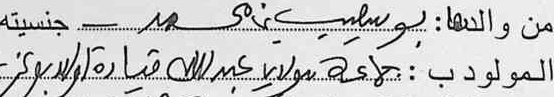 من والدها: بوسليب بن محمد – جنسيته
المولود ب: جماعة مولاي عبدالله قيادة اولاد بوعزيز